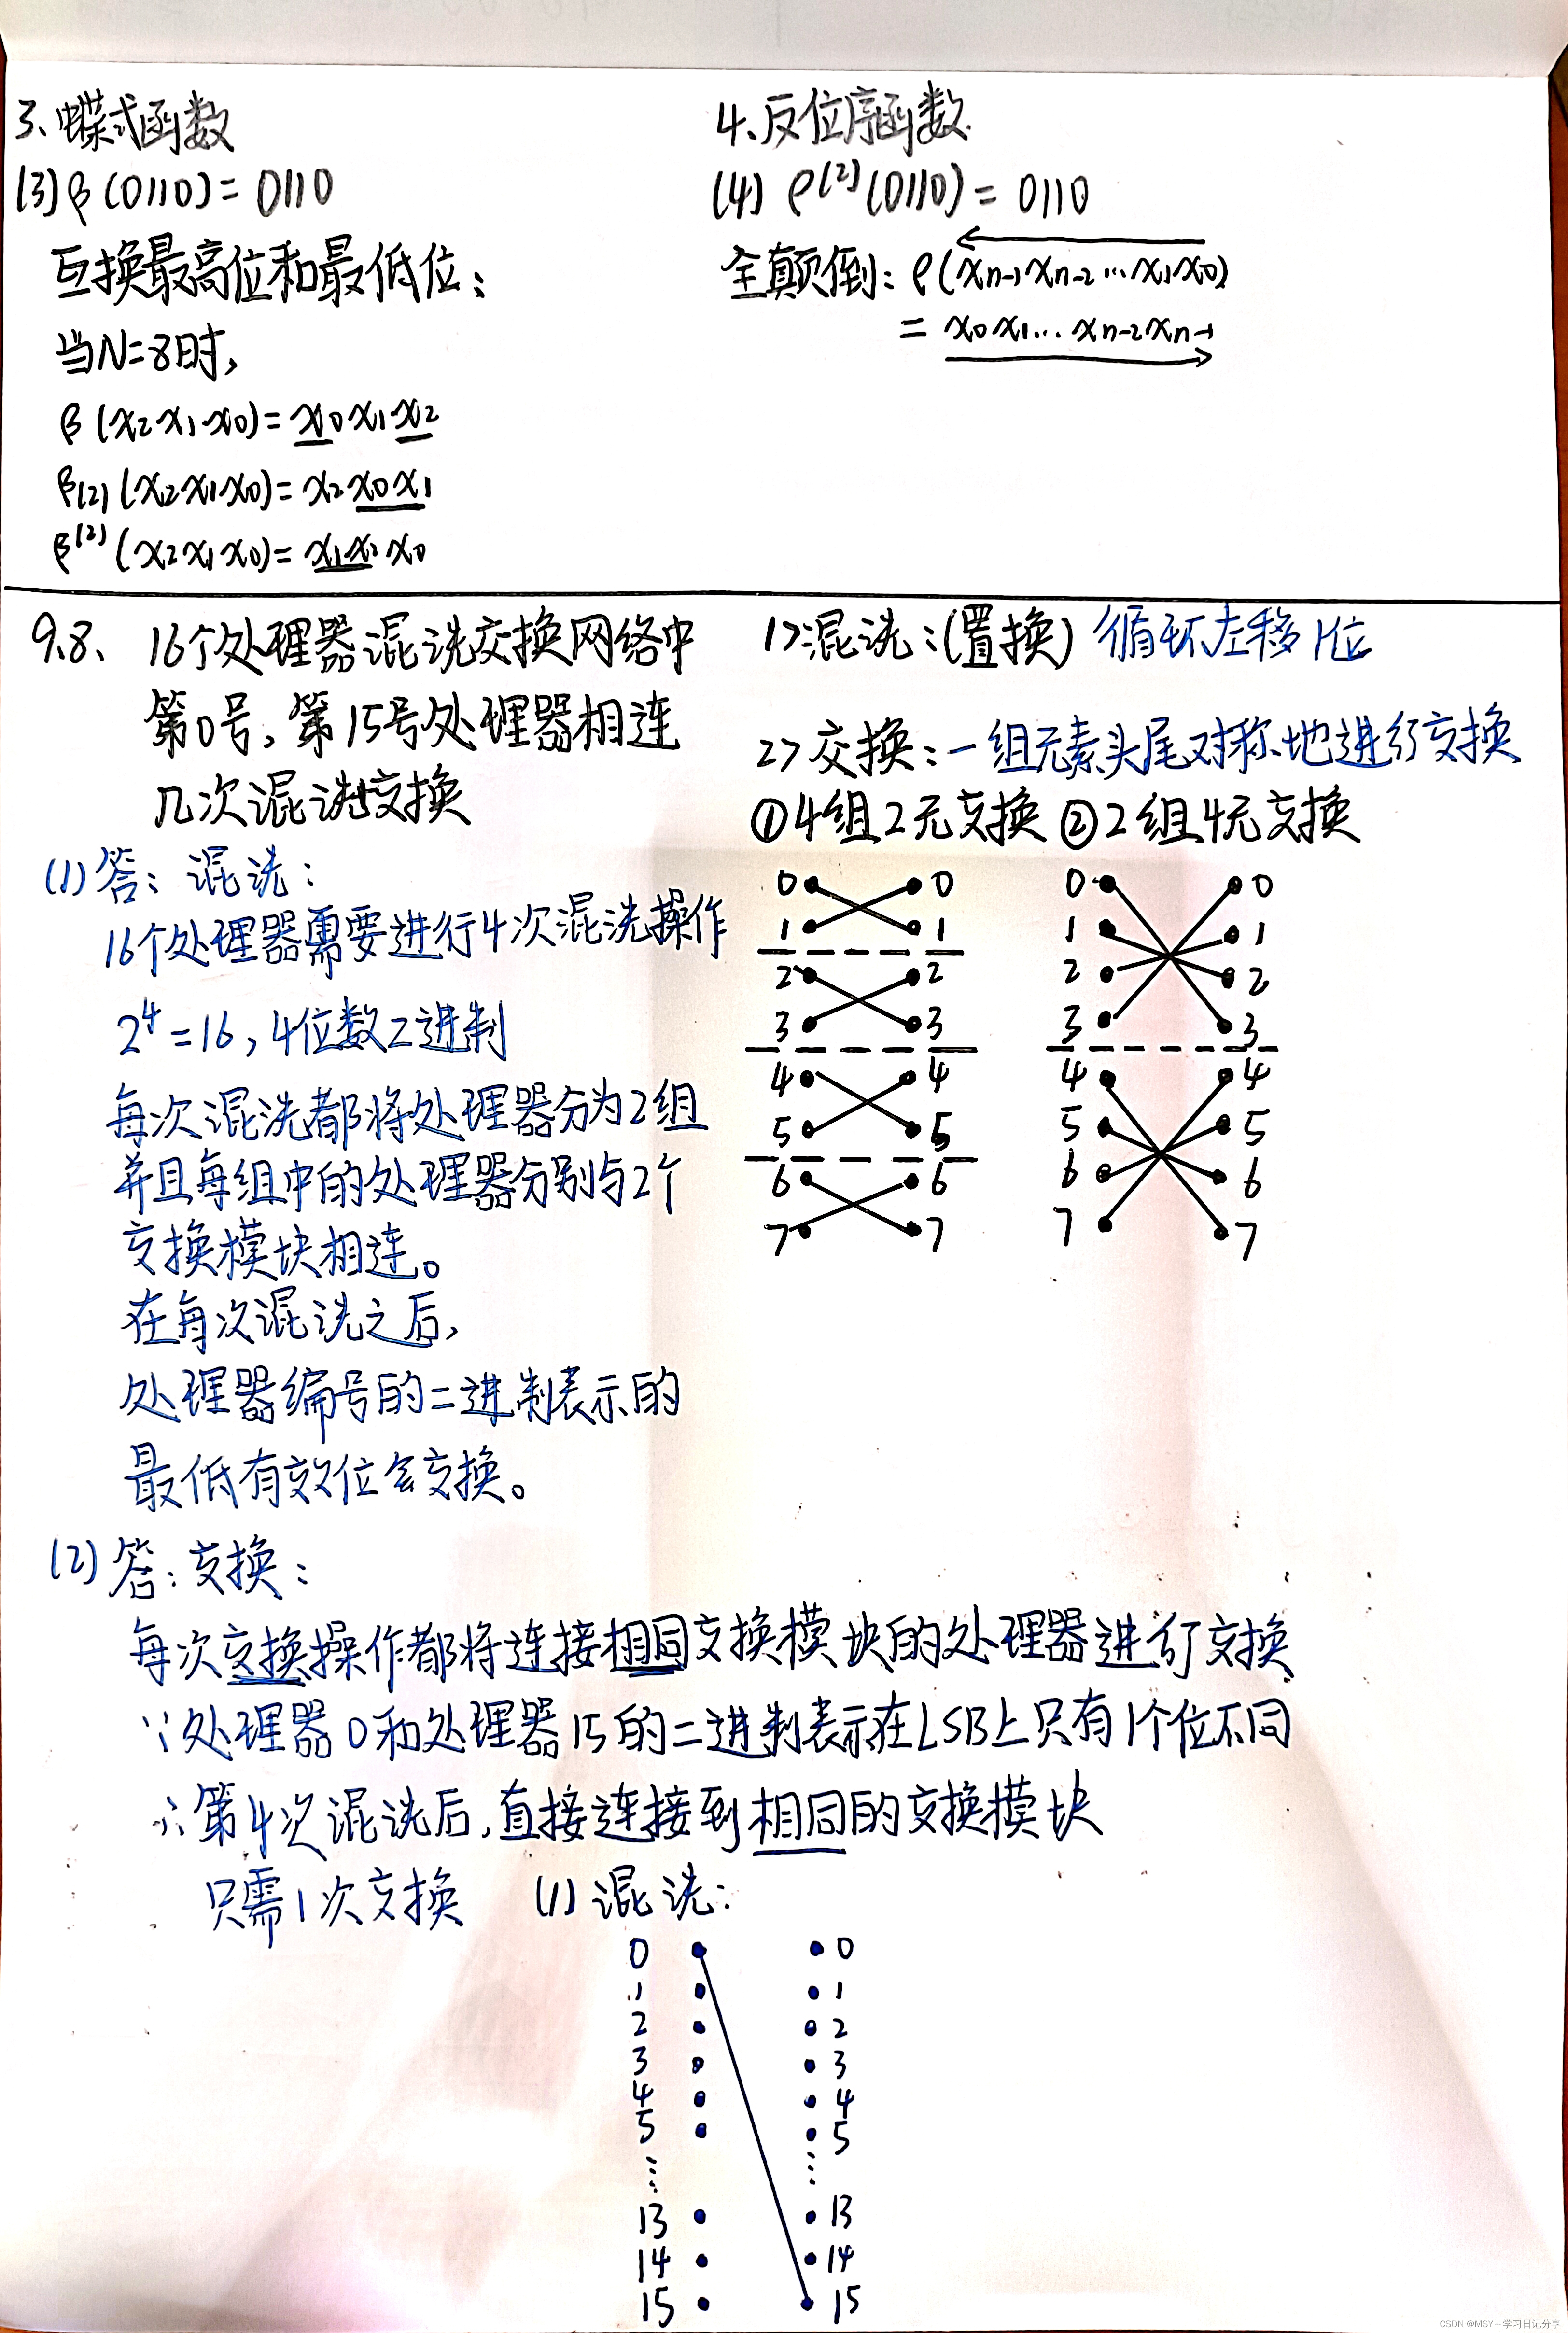 3、蝶式函数
(3) β(0110) = 0110
互换最高位和最低位；
当N=8时,
β(x2x1x0) = x0x1x2
β(2)(x2x1x0) = x2x0x1
β^(2)(x2x1x0) = x1x2x0
4、反位序函数
(4) ρ^(2)(0110) = 0110
全颠倒：ρ(xn-1xn-2…x1x0)
= x0x1…xn-2xn-1
9.8、16个处理器混洗交换网络中
第0号，第15号处理器相连
几次混洗交换
(1)答：混洗：
16个处理器需要进行4次混洗操作
2^4=16, 4位数2进制
每次混洗都将处理器分为2组
并且每组中的处理器分别与2个
交换模块相连。
在每次混洗之后,
处理器编号的二进制表示的
最低有效位会交换。
1>混洗：(置换) 循环左移1位
2>交换：一组元素头尾对称地进行交换
①4组2元交换 ②2组4元交换
0 0 0 0
1 1 1 1
2 2 2 2
3 3 3 3
4 4 4 4
5 5 5 5
6 6 6 6
7 7 7 7
(2)答：交换：
每次交换操作都将连接相同交换模块的处理器进行交换
∵处理器0和处理器15的二进制表示在LSB上只有1个位不同
∴第4次混洗后,直接连接到相同的交换模块
只需1次交换 (1)混洗：
0 0
1 1
2 2
3 3
4 4
5 5
⋮ ⋮
13 13
14 14
15 15
CSDN @MSY～学习日记分享